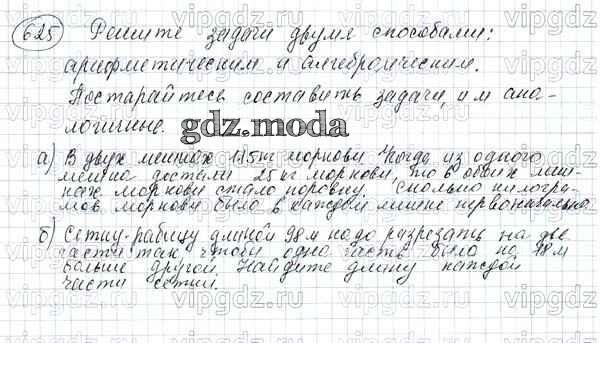 625 Решите задачи двумя способами:
арифметическим и алгебраическим.
Постарайтесь составить задачи, им ана-
логичные.
gdz.moda
а) В двух мешках 115 кг моркови. Когда из одного
мешка достали 25 кг моркови, то в обоих меш-
ках моркови стало поровну. Сколько килогра-
мов моркови было в каждом мешке первоначально
б) Сетку-рабицу длиной 98 м надо разрезать на две
части так, чтобы одна часть была на 18 м
больше другой. Найдите длину каждой
части сетки.
vipgdz.ru